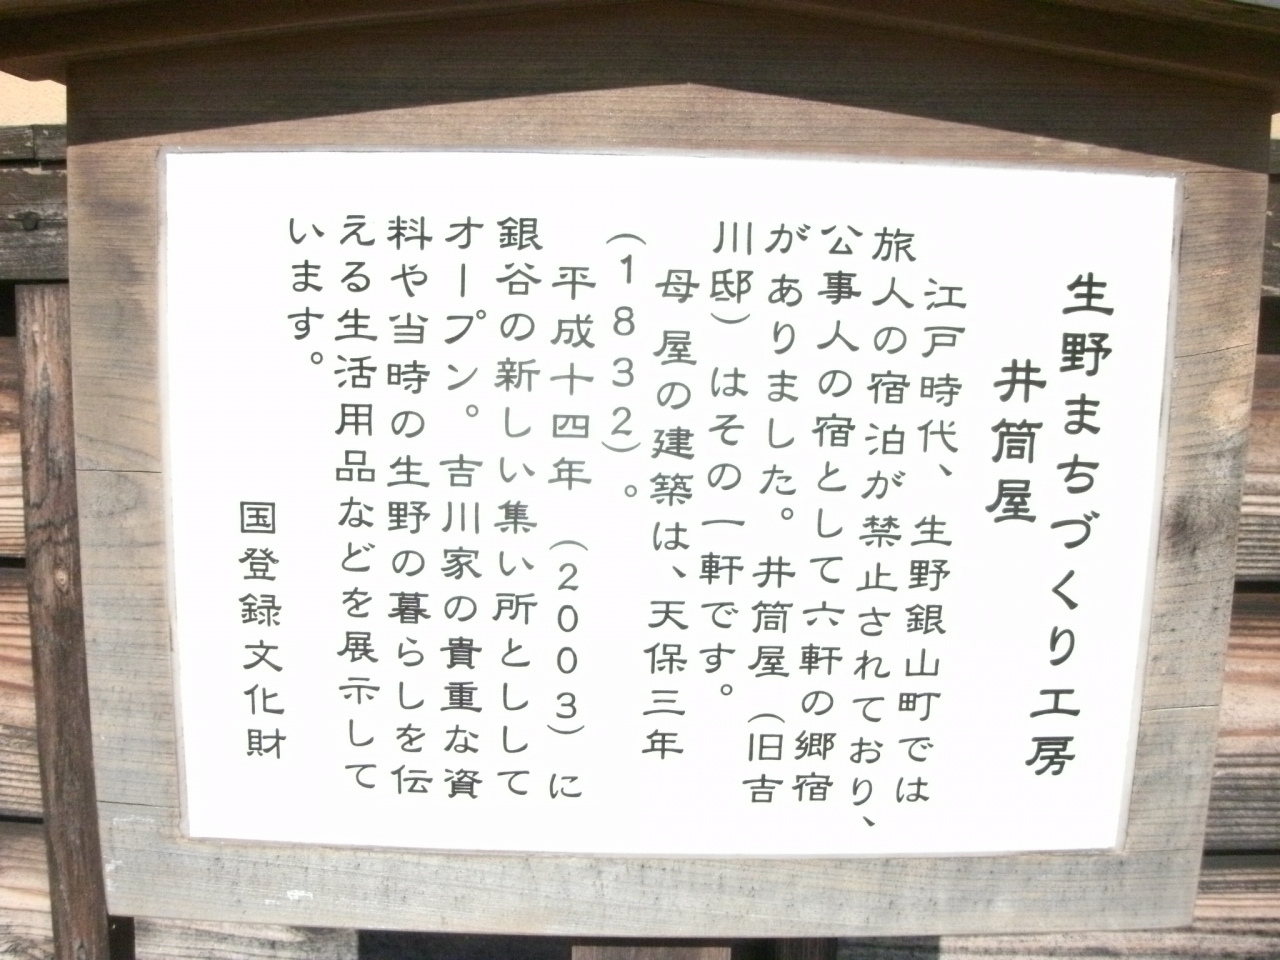 生野まちづくり工房
井筒屋
江戸時代、生野銀山町では
旅人の宿泊が禁止されており、
公事人の宿として六軒の郷宿
がありました。井筒屋（旧吉
川邸）はその一軒です。
母屋の建築は、天保三年
（1832）。
平成十四年（2003）に
銀谷の新しい集い所としして
オープン。吉川家の貴重な資
料や当時の生野の暮らしを伝
える生活用品などを展示して
います。
国登録文化財